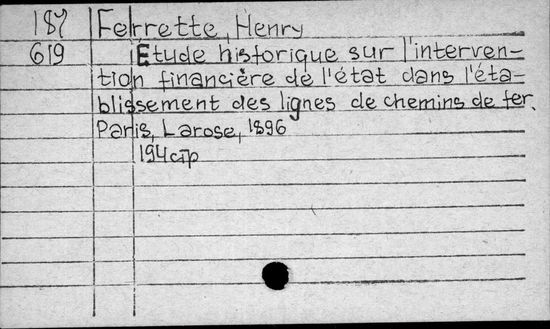 187 Ferrette, Henry
619 Etude historique sur l'interven-
tion financière de l'état dans l'éta-
blissement des lignes de chemins de fer.
Paris, Larose, 1896
194 стр